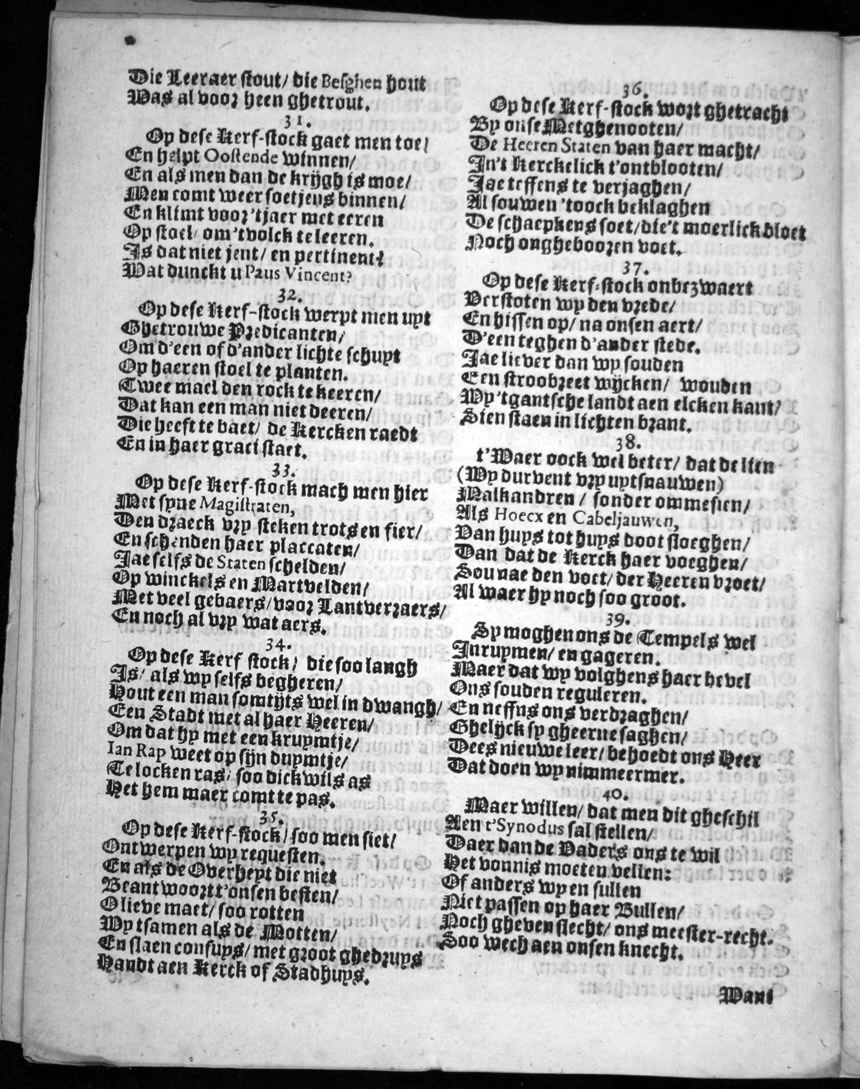 Die Leeraer stout/ die Besghen hout
Was al voor heen ghetrout.
31.
Op dese Kerf-stock gaet men toe/
En helpt Oostende winnen/
En als men dan de krijgh is moe/
Men comt weer soetjens binnen/
En klimt voor 'tjaer met eeren
Op stoel/ om 'tvolck te leeren.
Is dat niet jent/ en pertinent?
Wat dunckt u Paus Vincent?
32.
Op dese Kerf-stock werpt men uyt
Ghetrouwe Predicanten/
Om d'een of d'ander lichte schuyt
Op haeren stoel te planten.
Twee mael den rock te keeren/
Dat kan een man niet deeren/
Die heeft te baet/ de Kercken raedt
En in haer graci staet.
33.
Op dese Kerf-stock mach men hier
Met syne Magistraten,
Den draeck vry steken trots en fier/
En schenden haer placcaten/
Jae selfs de Staten schelden/
Op winckels en Martvelden/
Met veel gebaers/ voor Lantverraers/
En noch al vry wat aers.
34.
Op dese Kerf stock/ die soo langh
Is/ als wy selfs begheren/
Hout een man somtijts wel in dwangh/
Een Stadt met al haer Heeren/
Om dat hy met een kruymtje/
Ian Rap weet op sijn duymtje/
Te locken ras/ soo dickwils as
Het hem maer comt te pas.
35.
Op dese Kerf-stock/ soo men siet/
Ontwerpen wy requesten.
En als de Overheyt die niet
Beantwoort t'onsen besten/
O lieve maet/ soo rotten
Wy tsamen als de Motten/
En slaen confuys/ met groot ghedruys
Handt aen Kerck of Stadhuys.
36.
Op dese Kerf-stock wort ghetracht
By onse Metghenooten/
De Heeren Staten van haer macht/
In't Kerckelick t'ontblooten/
Jae teffens te verjaghen/
Al souwen 'toock beklaghen
De schaepkens soet/ die't moerlick bloet
Noch ongheboozen voet.
37.
Op dese Kerf-stock onbezwaert
Verstoten wy den vrede/
En hissen op/ na onsen aert/
D'een teghen d'ander stede.
Jae liever dan wy souden
Een stroobreet wijcken/ wouden
Wy 'tgantsche landt aen elcken kant/
Sien staen in lichten brant.
38.
t'Waer oock wel beter/ dat de lien
(Wy durvent vry uytsnauwen)
Malkandren/ sonder ommesien/
Als Hoecx en Cabeljauwen,
Van huys tot huys doot sloeghen/
Dan dat de Kerck haer voeghen/
Sou nae den voet/ der Heeren vroet/
Al waer hy noch soo groot.
39.
Sy moghen ons de Tempels wel
Inruymen/ en gageren.
Maer dat wy volghens haer bevel
Ons souden reguleren.
En neffns ons verdraghen/
Ghelijck sy gheerne saghen/
Dees nieuwe leer/ behoedt ons Heer
Dat doen wy nimmeermer.
40.
Maer willen/ dat men dit gheschil
Aen t'Synodus sal stellen/
Daer dan de Vaders ons te wil
Het vonnis moeten vellen:
Of anders wy en sullen
Niet passen op haer Bullen/
Noch gheven slecht/ ons meester-recht.
Soo wech aen onsen knecht.
Want